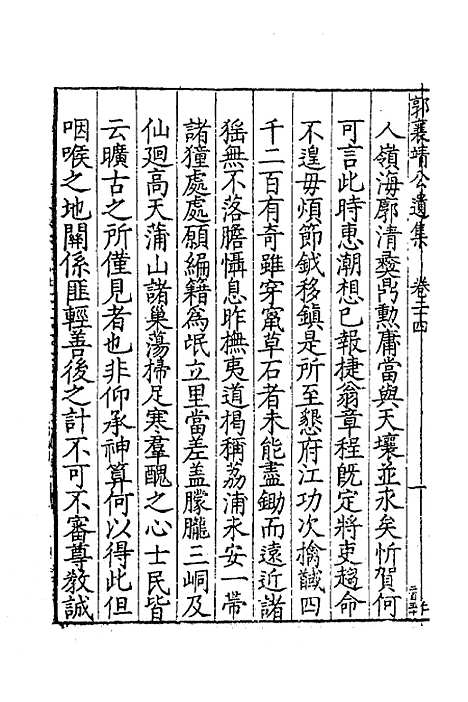 郭襄靖公遺集　卷二十四
人嶺海廓清彞鼎勲庸當與天壤並永矣忻賀何
可言此時惠潮想已報捷翁章程既定將吏趨命
不遑毋煩節鉞移鎮是所至懇府江功次擒馘四
千二百有奇雖穿窬草石者未能盡鋤而遠近諸
猺無不落膽懾息昨撫夷道揭稱荔浦永安一帶
諸獞處處願編籍為氓立里當差盖朦朧三峒及
仙廻高天蒲山諸巢蕩掃足寒羣醜之心士民皆
云曠古之所僅見者也非仰承神算何以得此但
咽喉之地關係匪輕善後之計不可不審尊教誠